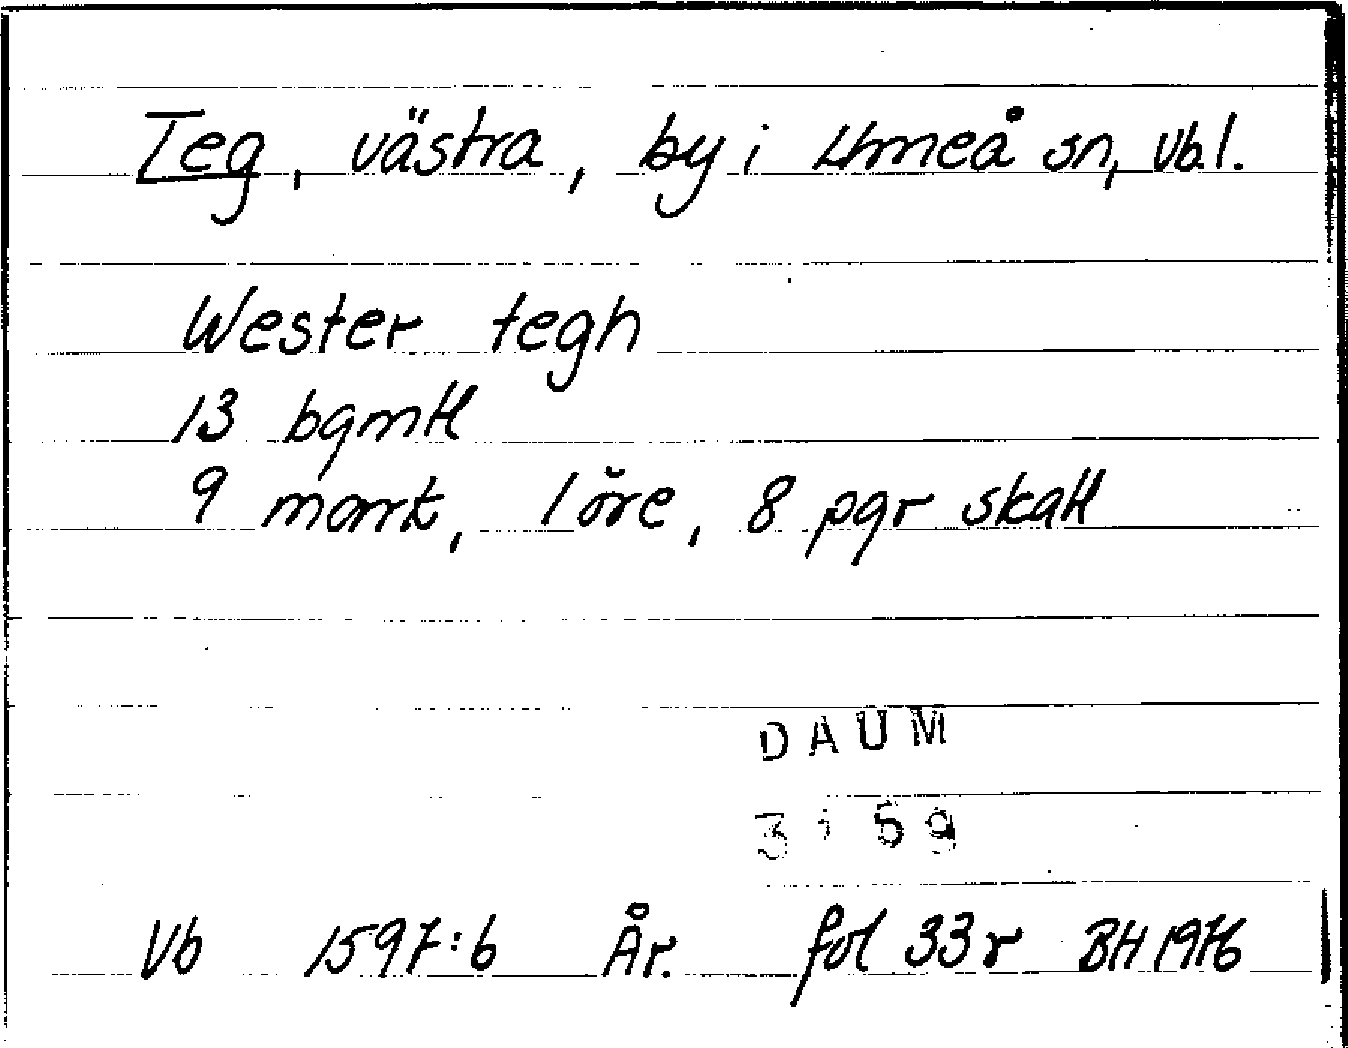 Teg, västra, by i Umeå sn, Vbl.
Wester tegh
13 bgmtl
9 mark, 1 öre, 8 pgr skatt
DAUM
3159
Vb 1597:6 År. fol 33r BH 1976